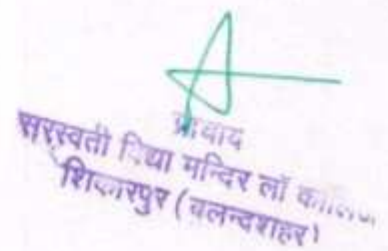 प्राचार्य
सरस्वती विद्या मन्दिर लॉ कालिज
शिकारपुर (बुलन्दशहर)